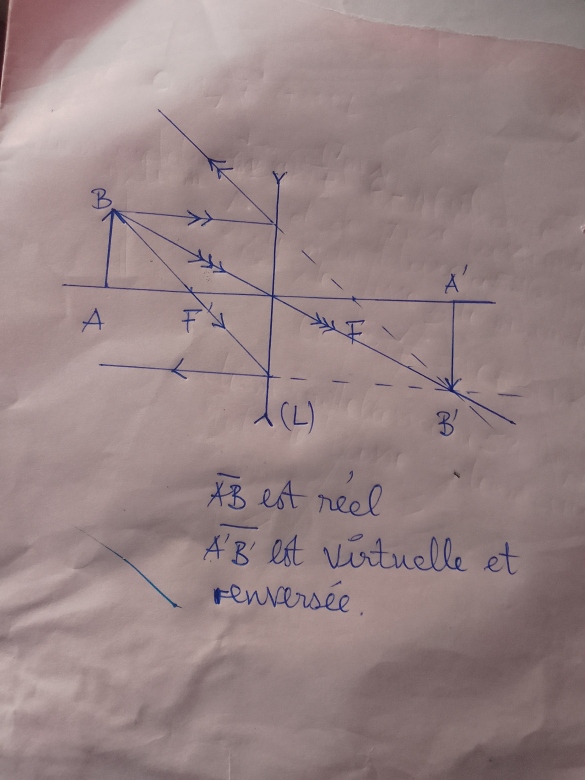 B
A'
A
F'
F
(L)
B'
A̅B̅ est réel
A̅'̅B̅'̅ est virtuelle et
renversée.